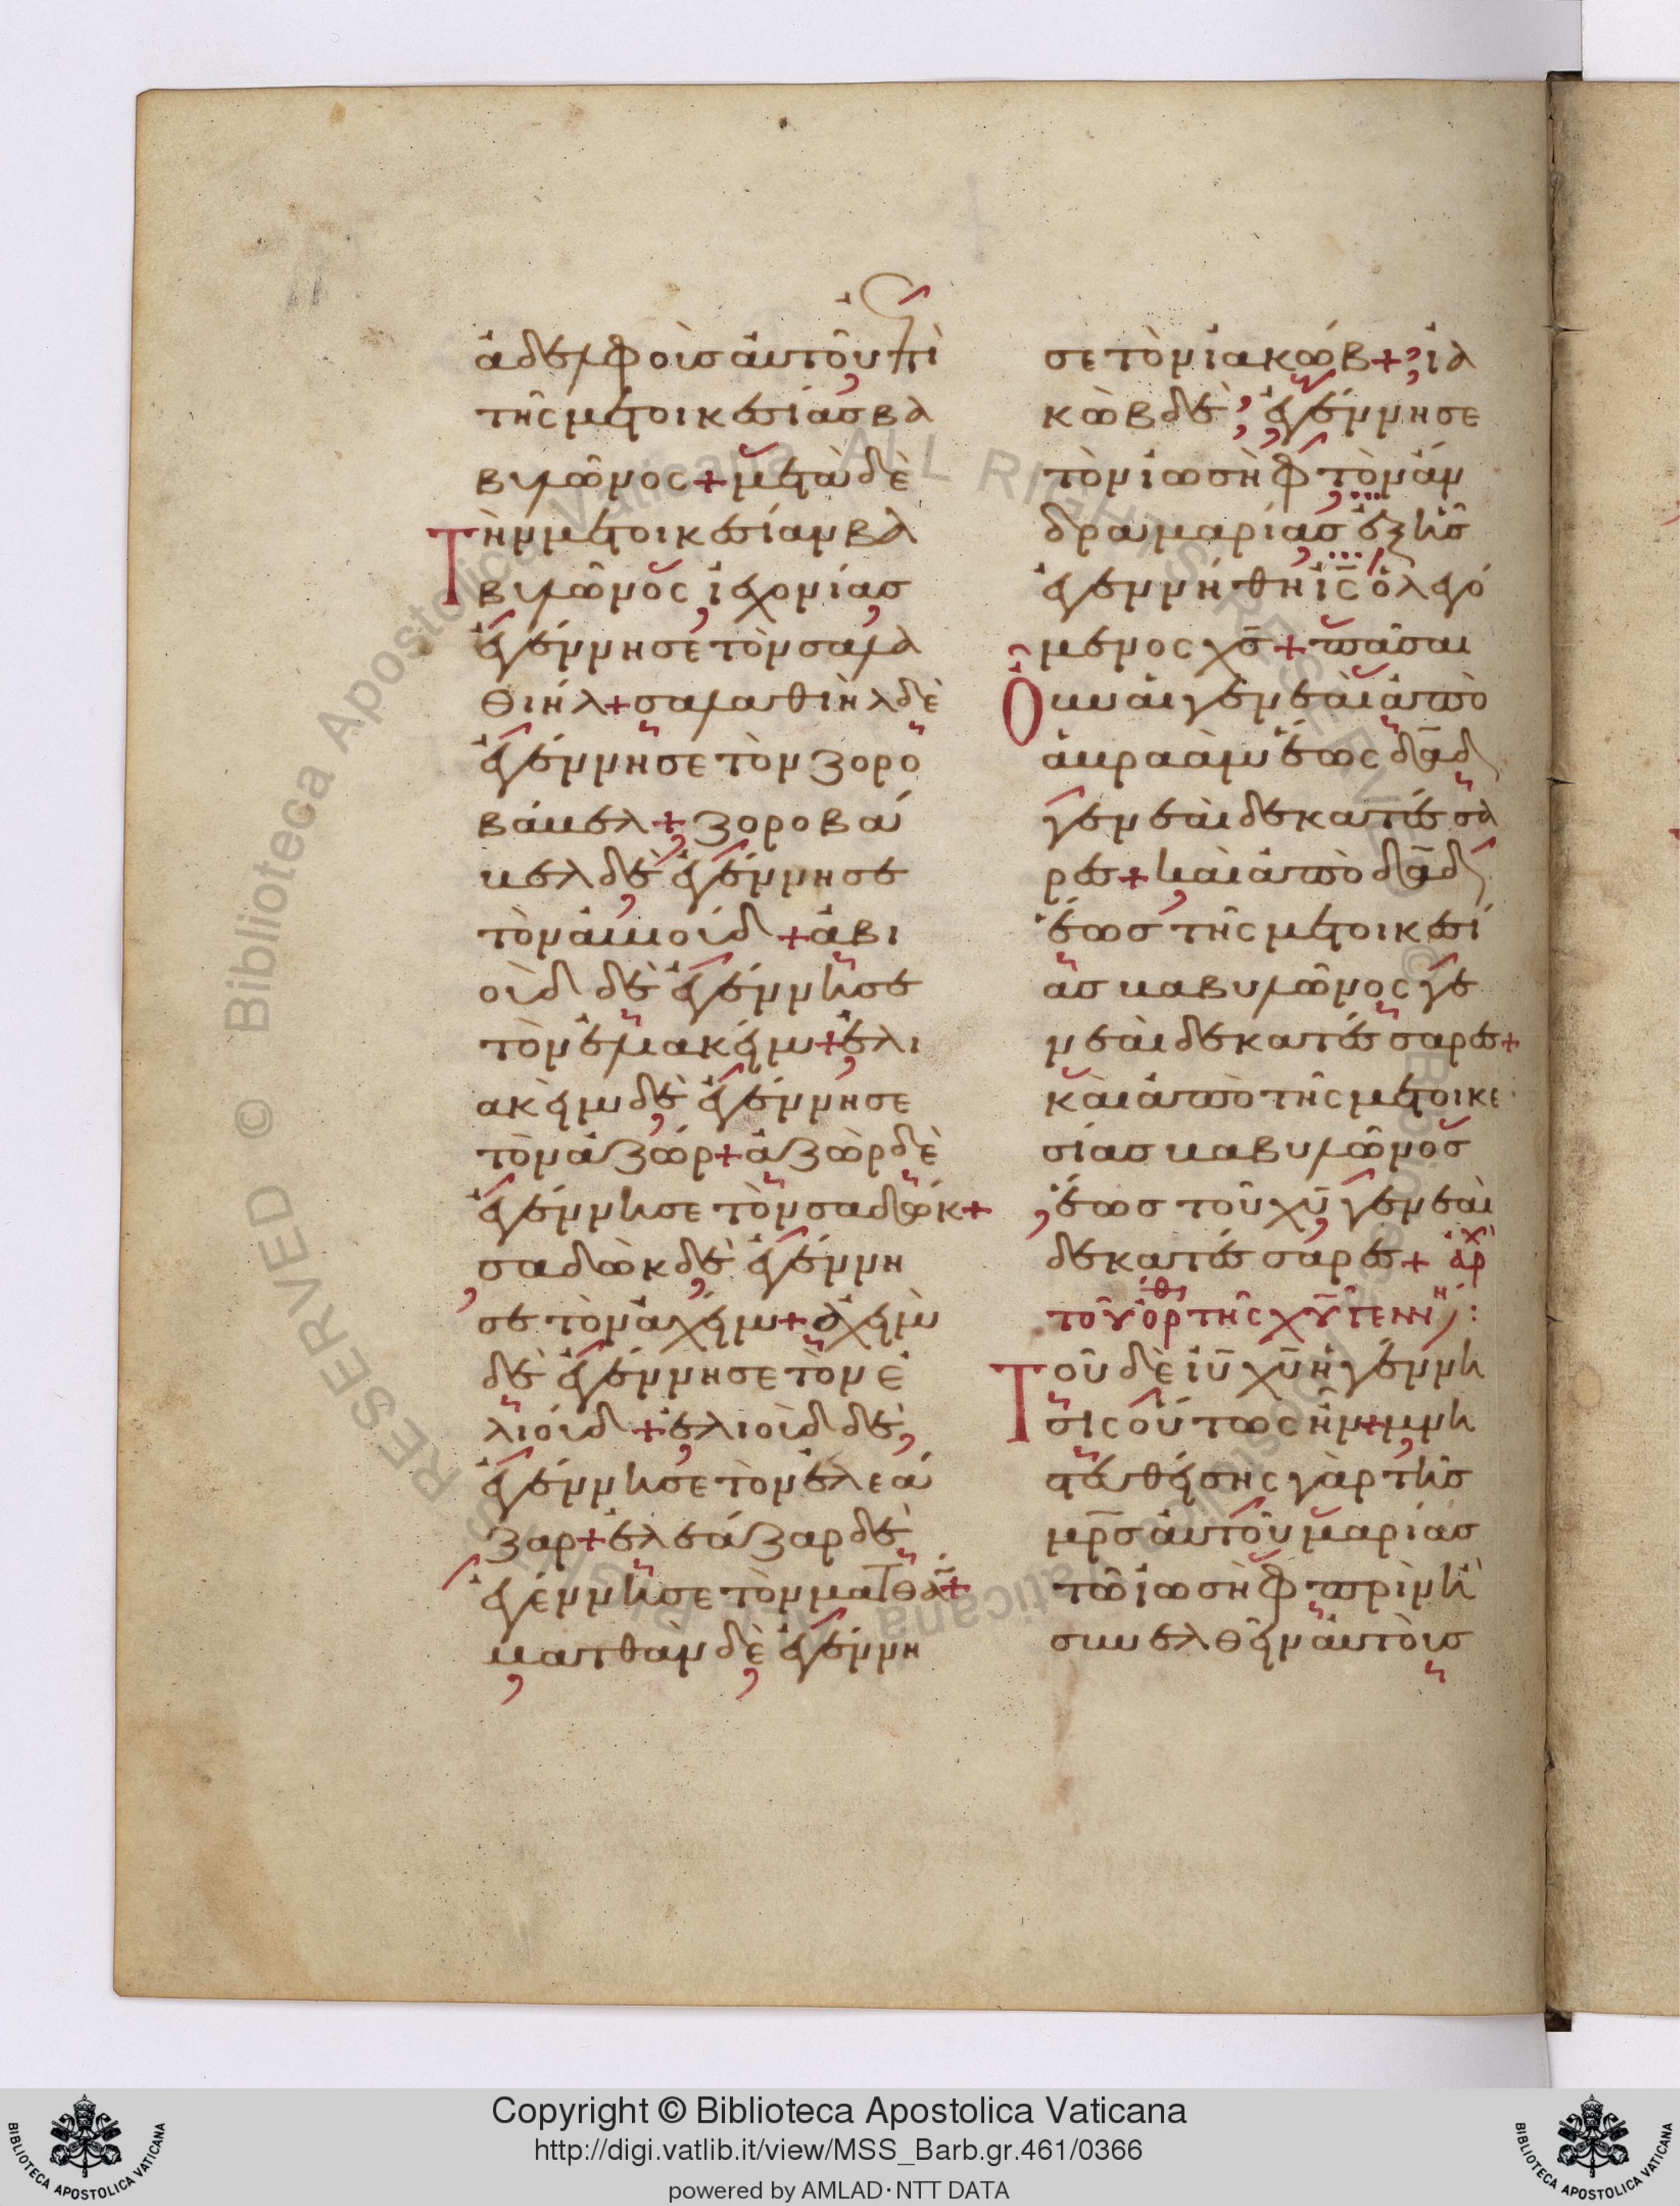 ἀδελφοὺσ ἀυτοῦ ἐπὶ
τῆς μετοικεσίασ βα
βυλῶνος + μετὰ δὲ
Τὴν μετοικεσίαν βα
βυλῶνος ἰεχονίασ
ἐγέννησε τὸν σαλα
θιήλ + σαλαθιὴλ δὲ
ἐγέννησε τὸν ζορο
βάβελ + ζοροβά
βελ δὲ ἐγέννησε
τὸν ἀβιούδ + ἀβι
οὺδ δὲ ἐγέννησε
τὸν ἐλιακείμ + ἐλι
ακεὶμ δὲ ἐγέννησε
τὸν ἀζώρ + ἀζὼρ δὲ
ἐγέννησε τὸν σαδώκ +
σαδὼκ δὲ ἐγέννη
σε τὸν ἀχείμ + ἀχεὶμ
δὲ ἐγέννησε τὸν ἐ
λιούδ + ἐλιοὺδ δὲ
ἐγέννησε τὸν ἐλεά
ζαρ + ἐλεάζαρ δὲ
ἐγέννησε τὸν ματθὰ̄ +
ματθὰν δὲ ἐγέννη
σε τὸν ἰακώβ + ἰα
κὼβ δὲ ἐγέννησε
τὸν ἰωσὴφ τὸν ἄν
δρα μαρίασ ἐξ ἧσ
ἐγεννήθη ἰ̄ς ὁ λεγό
μενος χ̄σ + πᾶσαι
Οὖν αἱ γενεαὶ ἀπὸ
ἀβραὰμ ἕως δ̄αδ
γενεαὶ δεκατέσσα
ρεσ + καὶ ἀπὸ δ̄αδ
ἕωσ τῆς μετοικεσί
ασ βαβυλῶνος γε
νεαὶ δεκατέσσαρεσ +
καὶ ἀπὸ τῆς μετοικε
σίασ βαβυλῶνοσ
ἕωσ τοῦ χ̄υ γενεαὶ
δεκατέσσαρεσ + ἀρχ
τοῦ ὄρθ τῆς χ̄υ γεννή :
Τοῦ δὲ ἰ̄υ χ̄υ ἡ γέννη
σις οὕτως ἦν + μνη
στευθείσης γὰρ τῆσ
μ̄ρσ ἀυτοῦ μαρίασ
τῶ ἰωσὴφ πρὶν ἢ
συνελθεῖν ἀυτοὺσ
Copyright © Biblioteca Apostolica Vaticana
http://digi.vatlib.it/view/MSS_Barb.gr.461/0366
powered by AMLAD·NTT DATA
BIBLIOTECA APOSTOLICA VATICANA
BIBLIOTECA APOSTOLICA VATICANA